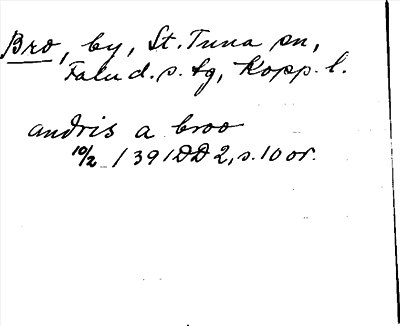 Bro, by, St. Tuna sn,
Falu d. s. tg, Kopp. l.
andris a broo
10/2 1391 DD 2, s. 10 or.